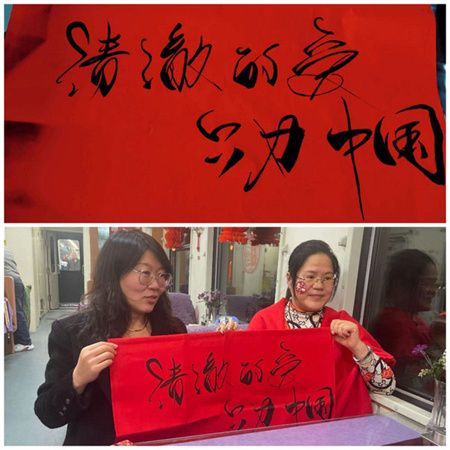 清澈的爱
只为中国
清澈的爱
只为中国